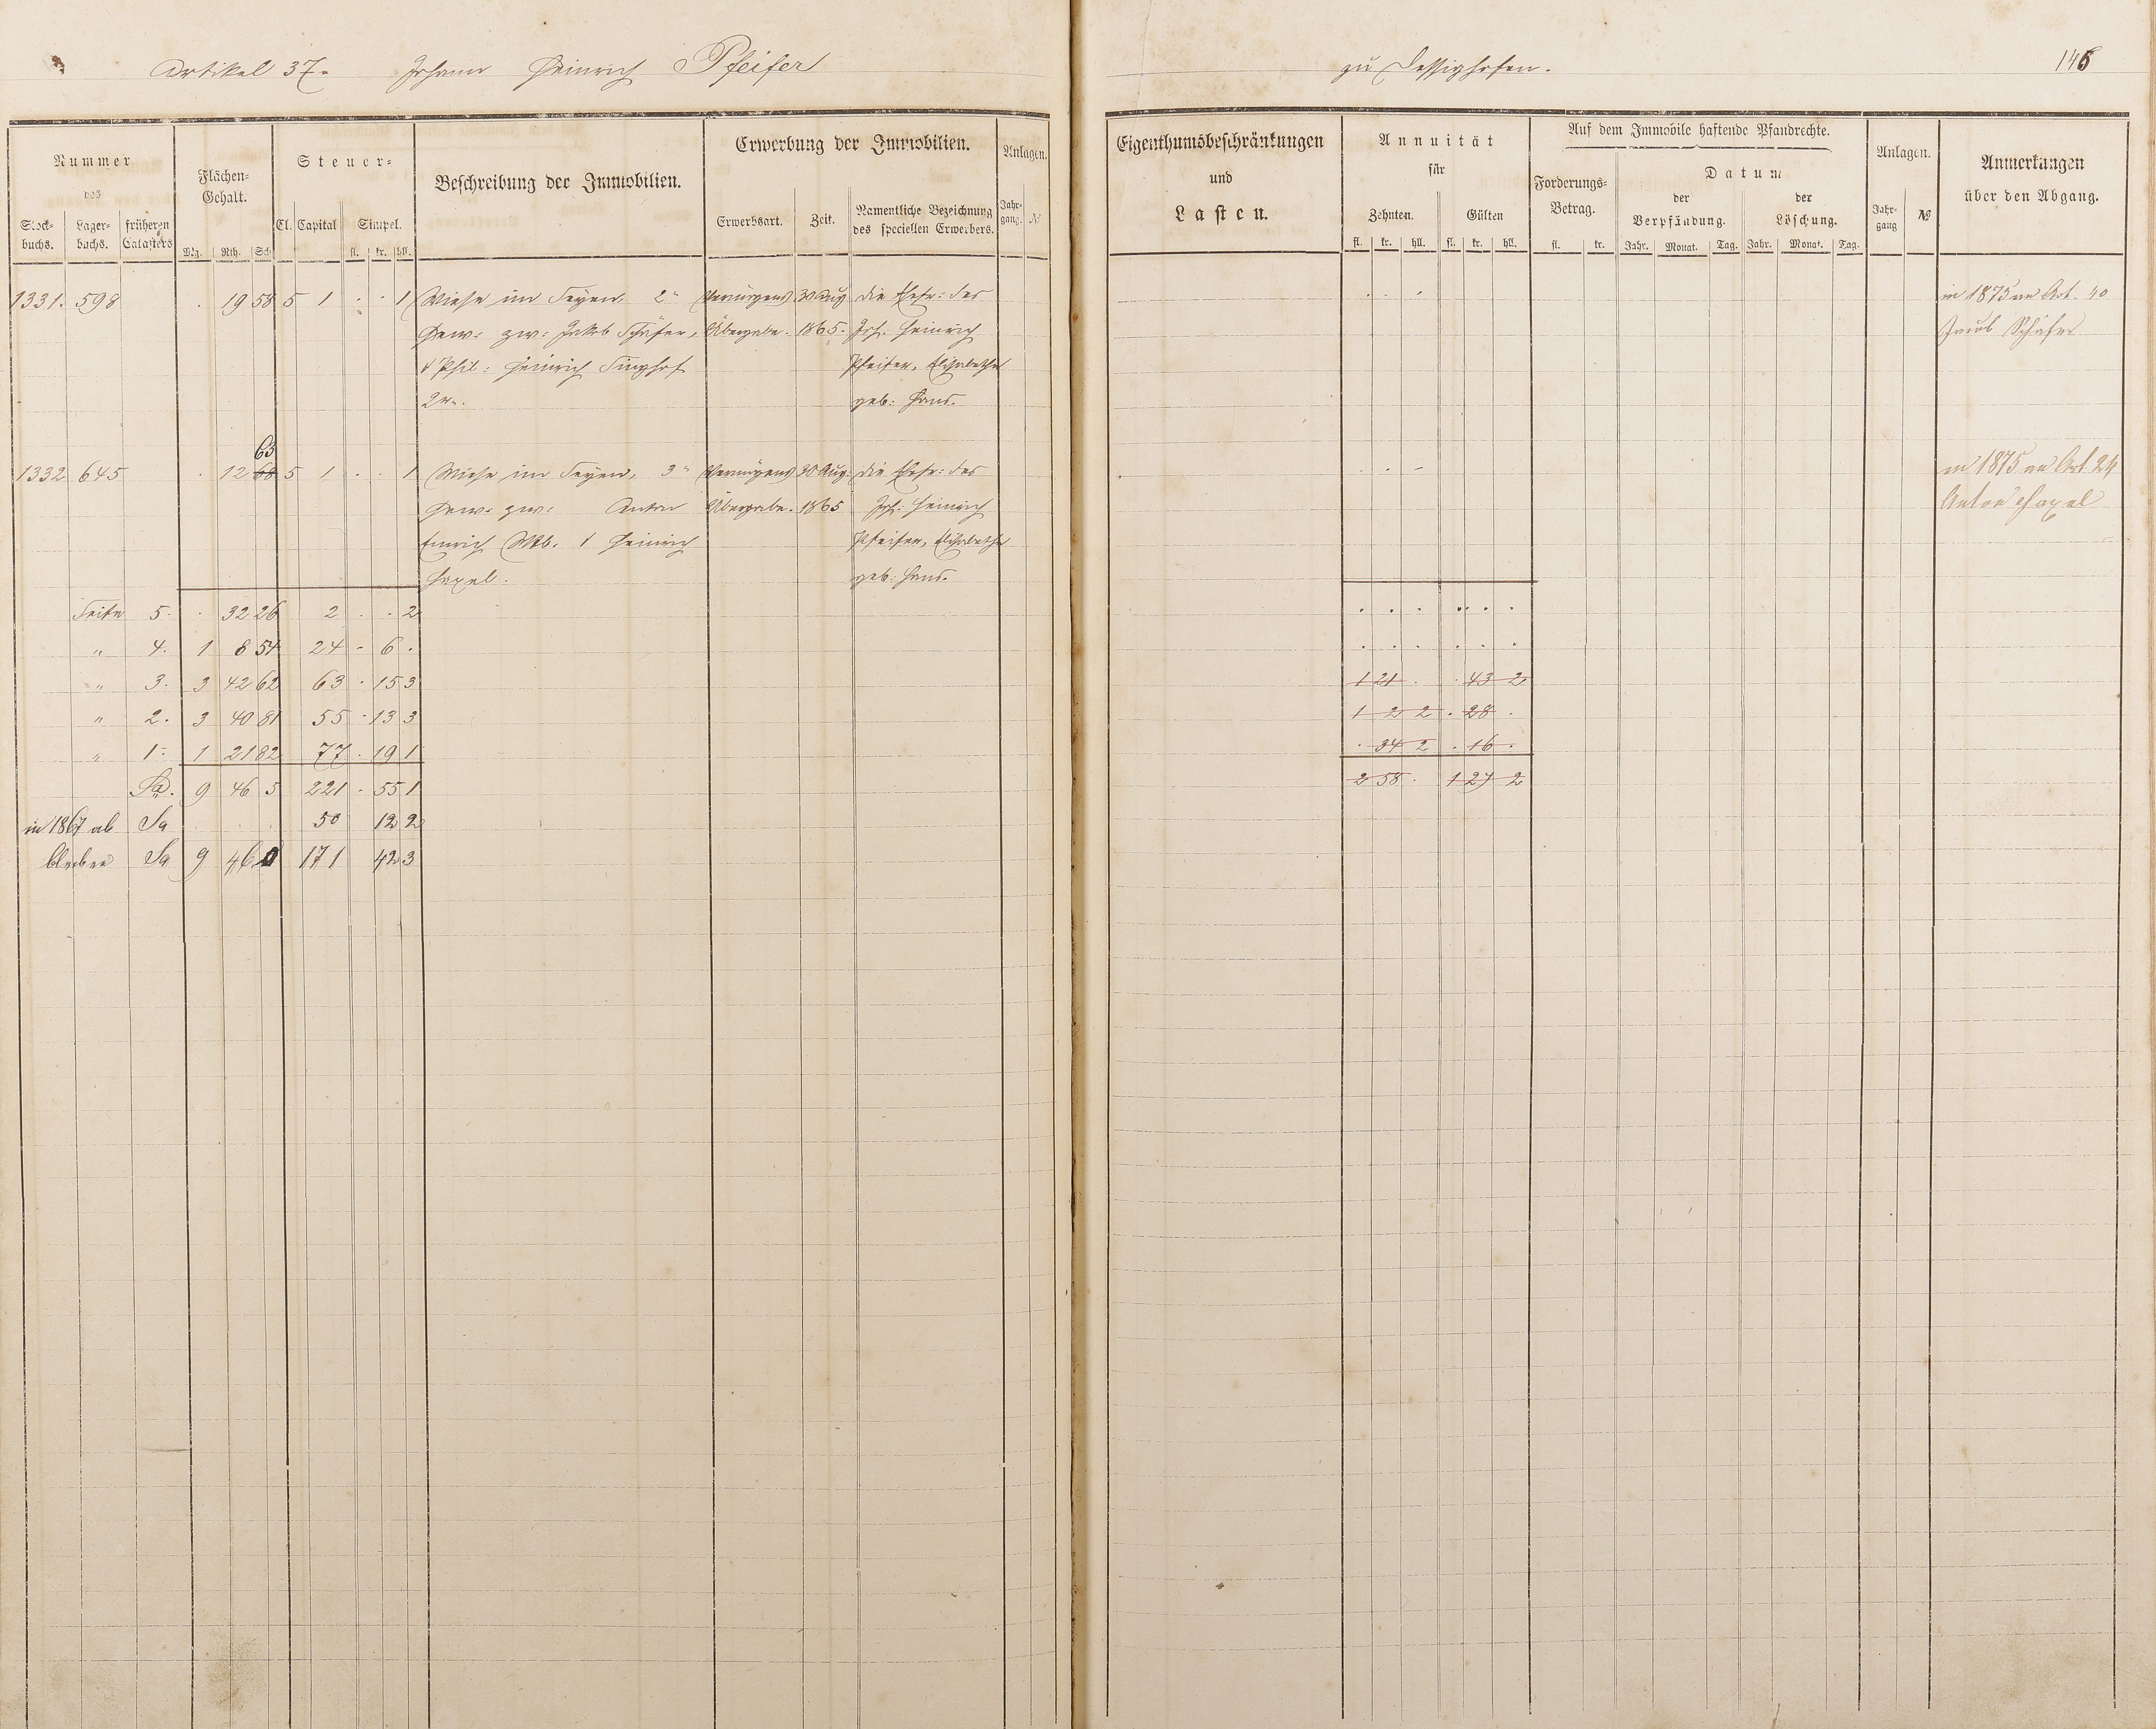 Artikel 37. Johann Heinrich Pfeifer
zu Dessighofen.
146
Nummer
des
Stock-
buchs.
Lager-
buchs.
früheren
Catasters
Flächen-
Gehalt.
Mg. Rth. Sch.
Steuer-
Cl. Capital Simpel.
fl. kr. hll.
Beschreibung der Immobilien.
Erwerbung der Immobilien.
Erwerbsart. Zeit.
Namentliche Bezeichnung
des speciellen Erwerbers.
Anlagen.
Jahr-
gang. №
Eigenthumsbeschränkungen
und
Lasten.
Annuität
für
Zehnten. Gülten
fl. kr. hll. fl. kr. hll.
Auf dem Immobile haftende Pfandrechte.
Forderungs-
Betrag.
fl. kr.
Datum
der
Verpfändung.
der
Löschung.
Jahr. Monat. Tag. Jahr. Monat. Tag.
Anlagen.
Jahr-
gang №
Anmerkungen
über den Abgang.
1331. 598 . 19 58 5 1 . . 1 Wiese im Seyen, 2" Vermögens 30 Aug die Ehefr: des
Gew. zw: Jakob Schäfer, Übergabe. 1865. Joh: Heinrich
Phil: Heinrich Singhof Pfeifer, Elisabetha
2r. geb: Hans.
in 1875 an Art. 40
Jacob Schäfer
63
1332 645 . 12 68 5 1 . . 1 Wiese im Seyen, 3" Vermögens 30 Aug: die Ehefr: des
Gew. zw: Anton Übergabe. 1865 Joh: Heinrich
Emrich Wb. Heinrich Pfeifer, Elisabetha
Hapel. geb: Hans.
in 1875 an Art. 24
Anton Hapel
Seite 5. . 32 26 2 . . 2
" 4. 1 8 54 24 . 6 .
" 3. 3 42 62 63 . 15 3 1 21 . . 43 2
" 2. 3 40 81 55 . 13 3 1 2 2 . 28 .
" 1. 1 21 82 77 . 19 1 . 34 2 . 16 .
Sa. 9 46 5 221 . 55 1 2 58 . 1 27 2
in 1867 ab Sa 50 12 2
bleiben Sa 9 46 0 171 42 3